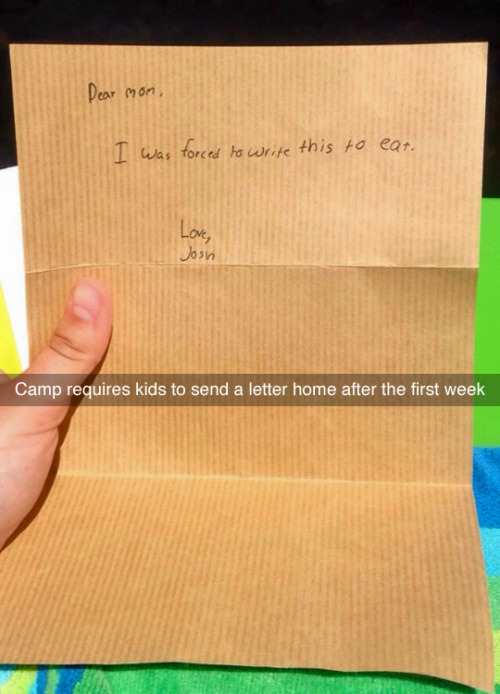 Dear mom,
I was forced to write this to eat.
Love,
Josh
Camp requires kids to send a letter home after the first week